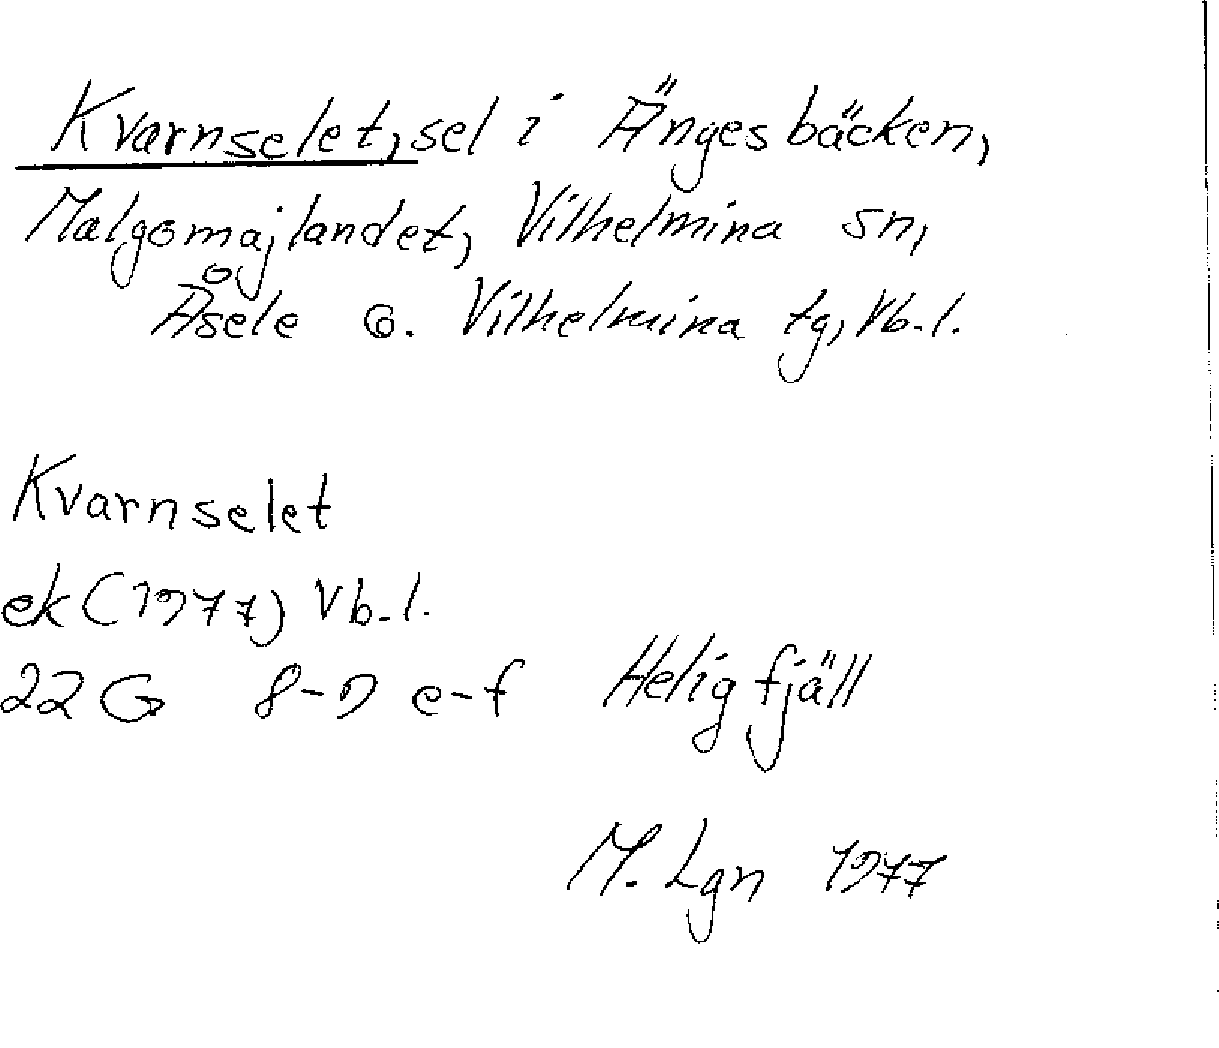 Kvarnselet, sel i Ängesbäcken,
Malgomajlandet, Vilhelmina sn,
Åsele o. Vilhelmina tg, Vb.l.
Kvarnselet
ek (1977) Vb.l.
22 G 8-9 e-f Heligfjäll
M. Lgn 1977